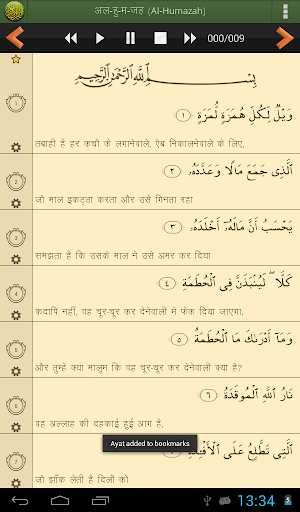 अल-हु-म-जह (Al-Humazah)
000/009
بِسْمِ ٱللَّهِ ٱلرَّحْمَٰنِ ٱلرَّحِيمِ
وَيْلٌ لِّكُلِّ هُمَزَةٍ لُّمَزَةٍ ١
1 तबाही है हर कचो के लगानेवाले, ऐब निकालनेवाले के लिए,
ٱلَّذِى جَمَعَ مَالًا وَعَدَّدَهُۥ ٢
2 जो माल इकट्ठा करता और उसे गिनता रहा
يَحْسَبُ أَنَّ مَالَهُۥٓ أَخْلَدَهُۥ ٣
3 समझता है कि उसके माल ने उसे अमर कर दिया
كَلَّا ۖ لَيُنۢبَذَنَّ فِى ٱلْحُطَمَةِ ٤
4 कदापि नहीं, वह चूर-चूर कर देनेवाली में फेंक दिया जाएगा,
وَمَآ أَدْرَىٰكَ مَا ٱلْحُطَمَةُ ٥
5 और तुम्हें क्या मालूम कि वह चूर-चूर कर देनेवाली क्या है?
نَارُ ٱللَّهِ ٱلْمُوقَدَةُ ٦
6 वह अल्लाह की दहकाई हुई आग है,
ٱلَّتِى تَطَّلِعُ عَلَى ٱلْأَفْـِٔدَةِ
Ayat added to bookmarks
7 जो झाँक लेती है दिलों को
13:34